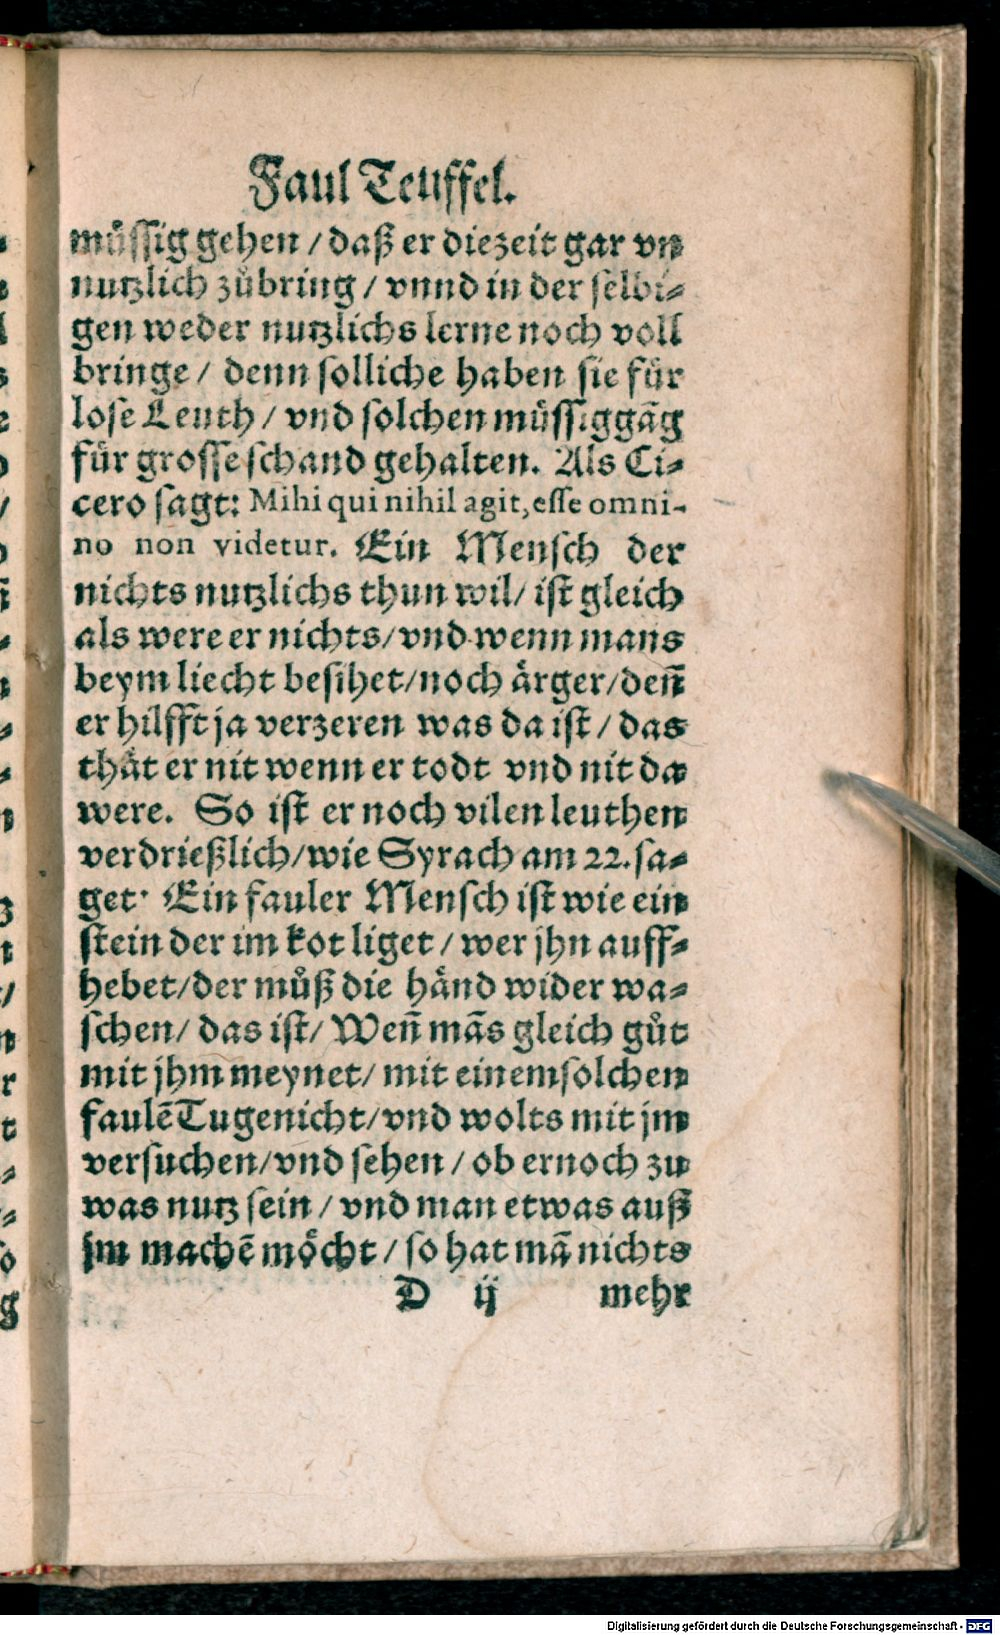 Faul Teuffel.
müssig gehen / daß er die zeit gar vn
nutzlich zůbring / vnnd in der selbi⸗
gen weder nutzlichs lerne noch voll
bringe / denn solliche haben sie für
lose Leuth / vnd solchen müssiggãg
für grosse schand gehalten. Als Ci⸗
cero sagt: Mihi qui nihil agit, esse omni-
no non videtur. Ein Mensch der
nichts nutzlichs thun wil / ist gleich
als were er nichts / vnd wenn mans
beym liecht besihet / noch ärger / deñ
er hilfft ja verzeren was da ist / das
thät er nit wenn er todt vnd nit da
were. So ist er noch vilen leuthen
verdrießlich / wie Syrach am 22. sa⸗
get: Ein fauler Mensch ist wie ein
stein der im kot liget / wer jhn auff⸗
hebet / der můß die händ wider wa⸗
schen / das ist / Weñ mãs gleich gůt
mit jhm meynet / mit einem solchen
faulẽ Tugenicht / vnd wolts mit jm
versuchen / vnd sehen / ob er noch zu
was nutz sein / vnd man etwas auß
jm machẽ möcht / so hat mã nichts
D ij mehr
Digitalisierung gefördert durch die Deutsche Forschungsgemeinschaft - DFG